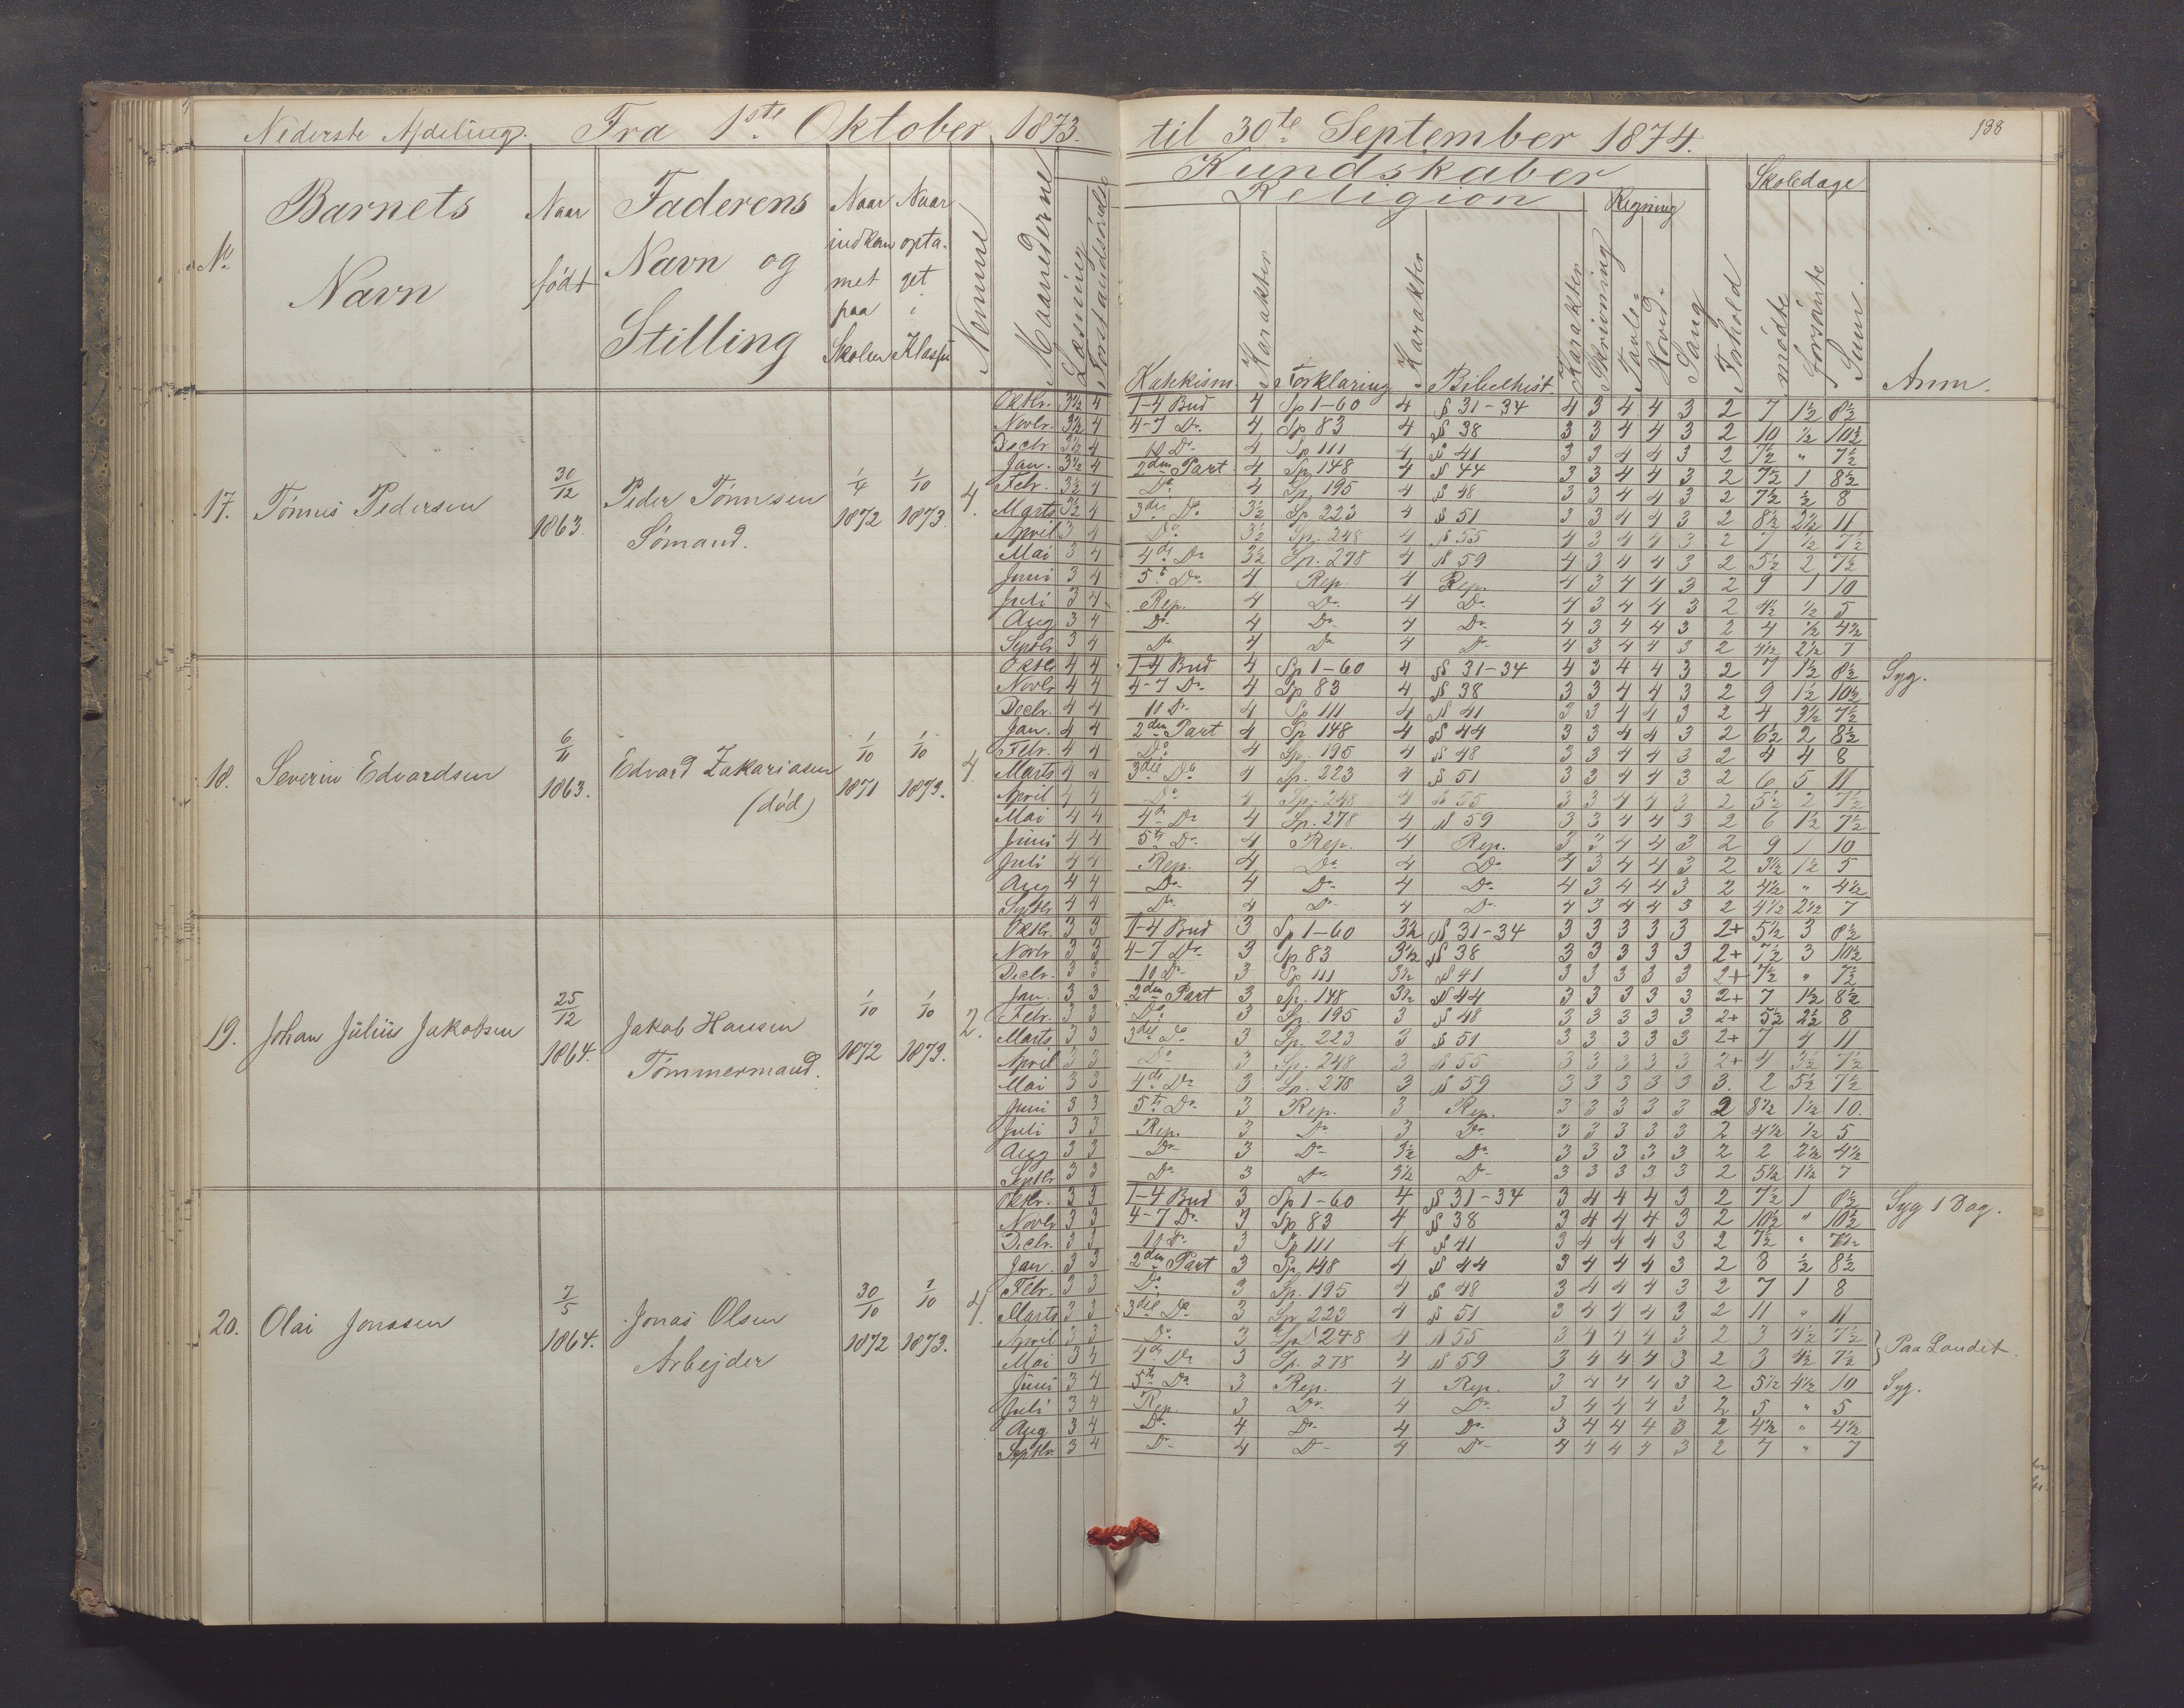 Nederste Afdeling. Fra 1ste Oktober 1873. til 30te September 1874. 138
No Barnets Navn
Naar født
Faderens Navn og Stilling
Naar indkommet paa Skolen
Naar optaget i Klassen
Nemme
Maanederne
Læsning
Forstandsøvelse
Kundskaber
Religion
Katekism.
Karakter
Forklaring
Karakter
Bibelhist.
Karakter
Skrivning
Regning
Tavle-
Hoved-
Sang
Forhold
Skoledage
mødte
forsømte
Sum.
Anm.
17. Tønnes Pedersen 30/12 1863. Peder Tønnesen Sømand. 1/4 1872 1/10 1873. 4.
Oktbr. 3½ 4 1-4 Bud 4 Sp 1-60 4 § 31-34 4 3 4 4 3 2 7 1½ 8½
Novbr. 3½ 4 4-7 Do. 4 Sp 83 4 § 38 3 3 4 4 3 2 10 ½ 10½
Decbr 3½ 4 10 Do. 4 Sp 111 4 § 41 3 3 4 4 3 2 7½ " 7½
Jan. 3½ 4 2den Part 4 Sp. 148 4 § 44 3 3 4 4 3 2 7½ 1 8½
Febr. 3½ 4 Do. 4 Sp. 195 4 § 48 3 3 4 4 3 2 7½ ½ 8
Marts 3½ 4 3die Do. 3½ Sp. 223 4 § 51 3 3 4 4 3 2 8½ 2½ 11
April 3 4 Do. 3½ Sp. 248 4 § 55 4 3 4 4 3 2 7 ½ 7½
Mai 3 4 4de Do 3½ Sp. 278 4 § 59 4 3 4 4 3 2 5½ 2 7½
Juni 3 4 5te Do. 4 Rep. 4 Rep. 4 3 4 4 3 2 9 1 10
Juli 3 4 Rep. 4 Do. 4 Do. 4 3 4 4 3 2 4½ ½ 5
Aug 3 4 Do. 4 Do. 4 Do. 4 3 4 4 3 2 4 ½ 4½
Septbr 3 4 Do 4 Do 4 Do. 4 3 4 4 3 2 4½ 2½ 7
18. Severin Edvardsen 6/11 1863. Edvard Zakariasen (død) 1/10 1871 1/10 1873. 4.
Oktbr 4 4 1-4 Bud 4 Sp 1-60 4 § 31-34 4 3 4 4 3 2 7 1½ 8½ Syg.
Novbr 4 4 4-7 Do. 4 Sp 83 4 § 38 3 3 4 4 3 2 9 1½ 10½
Decbr. 4 4 10 Do. 4 Sp 111 4 § 41 3 3 4 4 3 2 4 3½ 7½
Jan. 4 4 2den Part 4 Sp 148 4 § 44 3 3 4 4 3 2 6½ 2 8½
Febr. 4 4 Do. 4 Sp. 195 4 § 48 3 3 4 4 3 2 4 4 8
Marts 4 4 3die Do 4 Sp. 223 4 § 51 3 3 4 4 3 2 6 5 11
April 4 4 Do. 4 Sp. 248 4 § 55 3 3 4 4 3 2 5½ 2 7½
Mai 4 4 4de Do 4 Sp. 278 4 § 59 3 3 4 4 3 2 6 1½ 7½
Juni 4 4 5te Do. 4 Rep. 4 Rep. 3 3 4 4 3 2 9 1 10
Juli 4 4 Rep. 4 Do 4 Do. 4 3 4 4 3 2 3½ 1½ 5
Aug 4 4 Do. 4 Do. 4 Do. 4 3 4 4 3 2 4½ " 4½
Septbr 4 4 Do. 4 Do. 4 Do. 4 3 4 4 3 2 4½ 2½ 7
19. Johan Julius Jakobsen 25/12 1864. Jakob Hansen Tømmermand. 1/10 1872 1/10 1873. 2.
Oktbr. 3 3 1-4 Bud 3 Sp 1-60 3½ § 31-34 3 3 3 3 3 2+ 5½ 3 8½
Novbr 3 3 4-7 Do. 3 Sp 83 3½ § 38 3 3 3 3 3 2+ 7½ 3 10½
Decbr. 3 3 10 Do. 3 Sp 111 3½ § 41 3 3 3 3 3 2+ 7½ " 7½
Jan. 3 3 2den Part 3 Sp. 148 3½ § 44 3 3 3 3 3 2+ 7 1½ 8½
Febr. 3 3 Do. 3 Sp. 195 3 § 48 3 3 3 3 3 2+ 5½ 2½ 8
Marts 3 3 3die Do 3 Sp. 223 3 § 51 3 3 3 3 3 2+ 7 4 11
April 3 3 Do. 3 Sp. 248 3 § 55 3 3 3 3 3 2+ 4 3½ 7½
Mai 3 3 4de Do 3 Sp. 278 3 § 59 3 3 3 3 3 3. 2 5½ 7½
Juni 3 3 5te Do. 3 Rep. 3 Rep. 3 3 3 3 3 2 8½ 1½ 10.
Juli 3 3 Rep. 3 Do 3 Do. 3 3 3 3 3 2 4½ ½ 5
Aug 3 3 Do. 3 Do. 3½ Do. 3 3 3 3 3 2 2 2½ 4½
Septbr 3 3 Do 3 Do. 3½ Do. 3 3 3 3 3 2 5½ 1½ 7
20. Olai Jonasen 7/5 1864. Jonas Olsen Arbejder 30/10 1872 1/10 1873. 4.
Oktbr. 3 3 1-4 Bud 3 Sp 1-60 4 § 31-34 3 4 4 4 3 2 7½ 1 8½ Syg 1 Dag.
Novbr 3 3 4-7 Do. 3 Sp 83 4 § 38 3 4 4 4 3 2 10½ " 10½
Decbr. 3 3 10 Do. 3 Sp 111 4 § 41 3 4 4 4 3 2 7½ " 7½
Jan. 3 3 2den Part 3 Sp. 148 4 § 44 3 4 4 4 3 2 8 ½ 8½
Febr. 3 3 Do. 3 Sp. 195 4 § 48 3 4 4 4 3 2 7 1 8
Marts 3 3 3die Do. 3 Sp 223 4 § 51 3 4 4 4 3 2 11 " 11
April 3 3 Do. 3 Sp. 248 4 § 55 3 4 4 4 3 2 3 4½ 7½
Mai 3 4 4de Do 3 Sp. 278 4 § 59 3 4 4 4 3 2 3 4½ 7½ } Paa Landet.
Juni 3 4 5te Do. 3 Rep. 4 Rep. 3 4 4 4 3 2 5½ 4½ 10 Syg.
Juli 3 4 Rep. 3 Do. 4 Do. 3 4 4 4 3 2 5 " 5
Aug 3 4 Do. 4 Do. 4 Do. 3 4 4 4 3 2 4½ " 4½
Septbr. 3 4 Do. 4 Do 4 Do 4 4 4 4 3 2 7 " 7